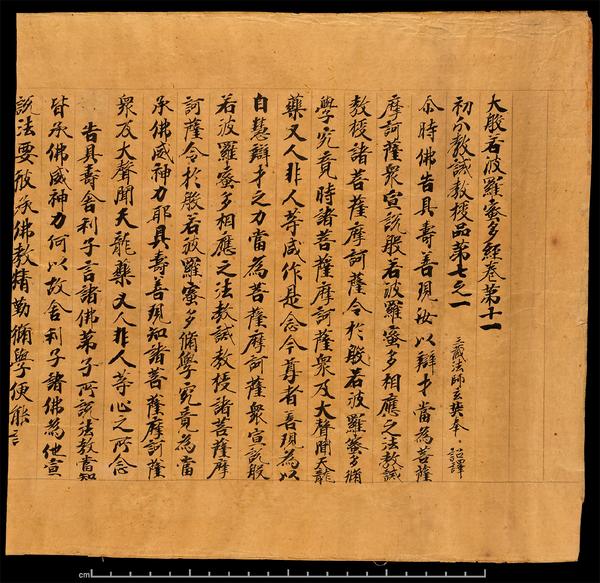 大般若波羅蜜多經卷第十一
初分教誡教授品第七之一
三藏法師玄奘奉 詔譯
尒時佛告具壽善現汝以辯才當為菩薩
摩訶薩衆宣說般若波羅蜜多相應之法教誡
教授諸菩薩摩訶薩令於般若波羅蜜多脩
學究竟時諸菩薩摩訶薩衆及大聲聞天龍
藥叉人非人等咸作是念今尊者善現為以
自慧辯才之力當為菩薩摩訶薩衆宣說般
若波羅蜜多相應之法教誡教授諸菩薩摩
訶薩令於般若波羅蜜多脩學究竟為當
承佛威神力耶具壽善現知諸菩薩摩訶薩
衆及大聲聞天龍藥叉人非人等心之所念
告具壽舍利子言諸佛弟子所說法教當知
皆承佛威神力何以故舍利子諸佛為他宣
說法要彼承佛教精勤脩學便能言
cm